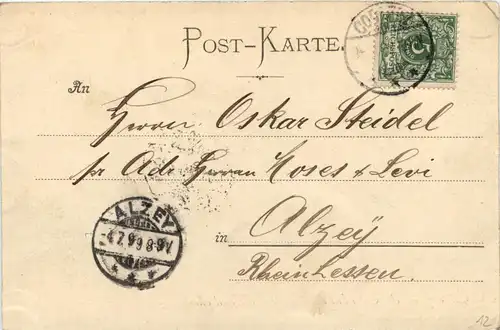 POST-KARTE.
An
Herrn Oskar Steidel
pr Adr Herrn Moses & Levi
in Alzey
Rheinhessen.
ALZEY
4.7.99 8-9V
5
12